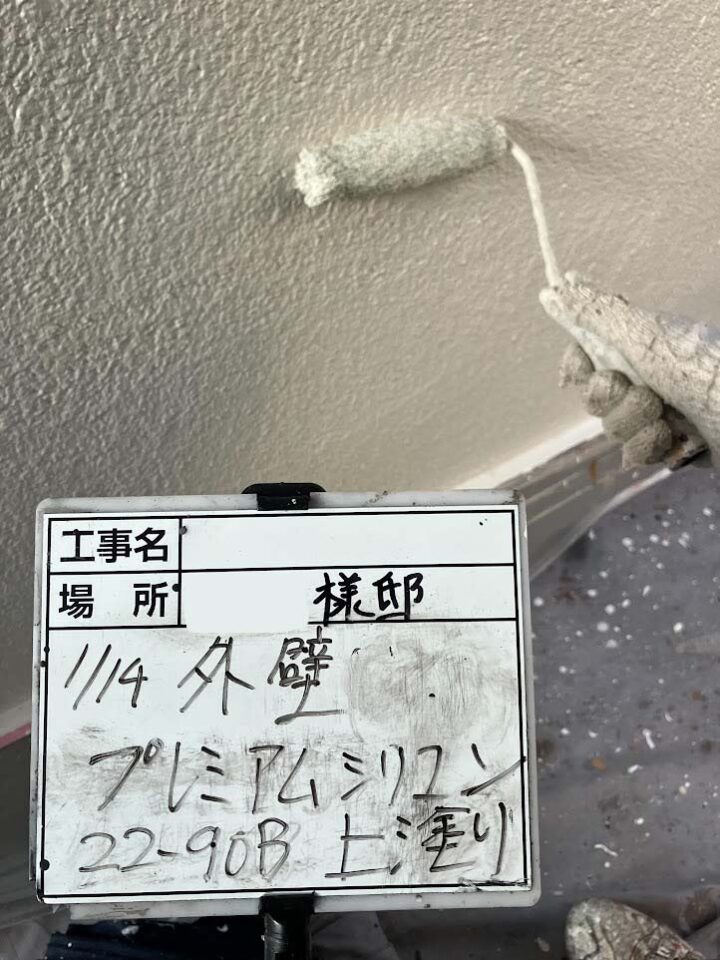 工事名
場所 様邸
1/14 外壁
プレミアムシリコン
22-90B 上塗り